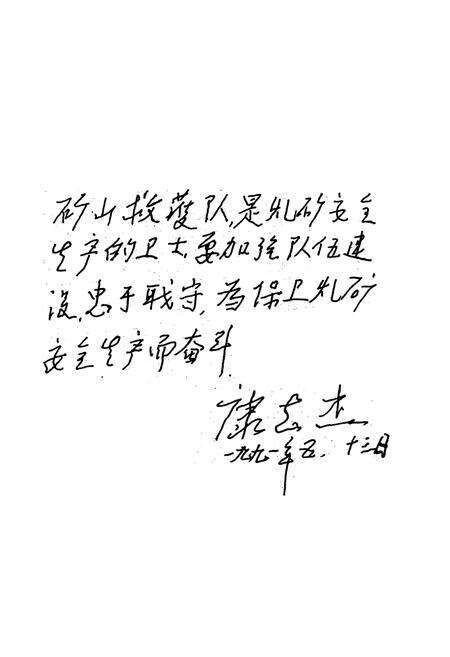 矿山救護队,是札矿安全
生产的卫士,要加强队伍建
设,忠于职守,為保卫札矿
安全生产而奋斗.
康志杰
一九九一年五.十三日